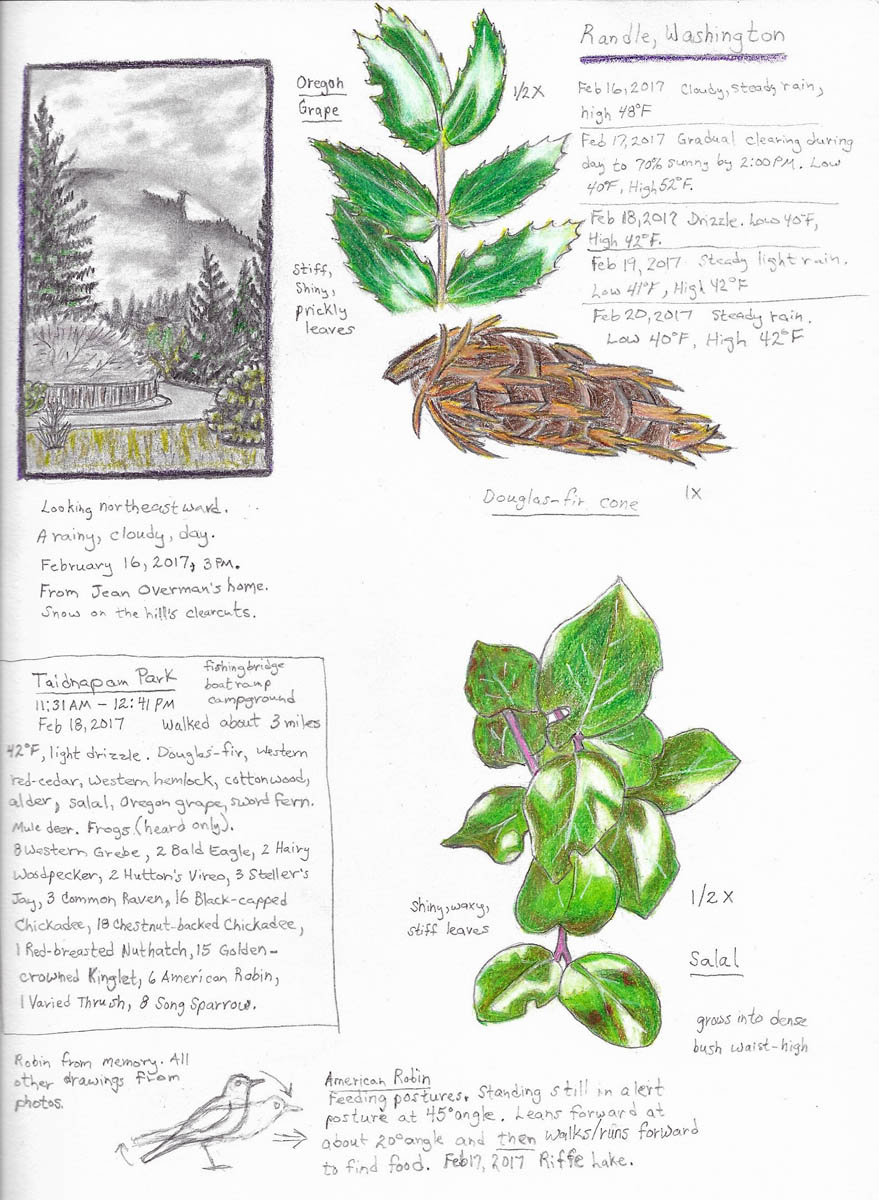 Randle, Washington
Feb 16, 2017 Cloudy, steady rain,
high 48°F
Feb 17, 2017 Gradual clearing during
day to 70% sunny by 2:00 PM. Low
40°F, High 52°F.
Feb 18, 2017 Drizzle. Low 40°F,
High 42°F.
Feb 19, 2017 Steady light rain.
Low 41°F, High 42°F
Feb 20, 2017 Steady rain.
Low 40°F, High 42°F
Oregon
Grape
1/2X
Stiff,
Shiny,
prickly
leaves
Douglas-fir cone
1X
Looking northeastward.
A rainy, cloudy, day.
February 16, 2017, 3 PM.
From Jean Overman's home.
Snow on the hill's clearcuts.
Taidnapam Park
fishing bridge
boat ramp
campground
11:31 AM - 12:41 PM
Feb 18, 2017 Walked about 3 miles
42°F, light drizzle. Douglas-fir, Western
red-cedar, Western hemlock, cottonwood,
alder, salal, Oregon grape, sword fern.
Mule deer. Frogs (heard only).
8 Western Grebe, 2 Bald Eagle, 2 Hairy
Woodpecker, 2 Hutton's Vireo, 3 Steller's
Jay, 3 Common Raven, 16 Black-capped
Chickadee, 18 Chestnut-backed Chickadee,
1 Red-breasted Nuthatch, 15 Golden-
crowned Kinglet, 6 American Robin,
1 Varied Thrush, 8 Song Sparrow.
Shiny, waxy,
stiff leaves
1/2 X
Salal
grows into dense
bush waist-high
Robin from memory. All
other drawings from
photos.
American Robin
Feeding postures. Standing still in alert
posture at 45° angle. Leans forward at
about 20° angle and then walks/runs forward
to find food. Feb 17, 2017 Riffe Lake.